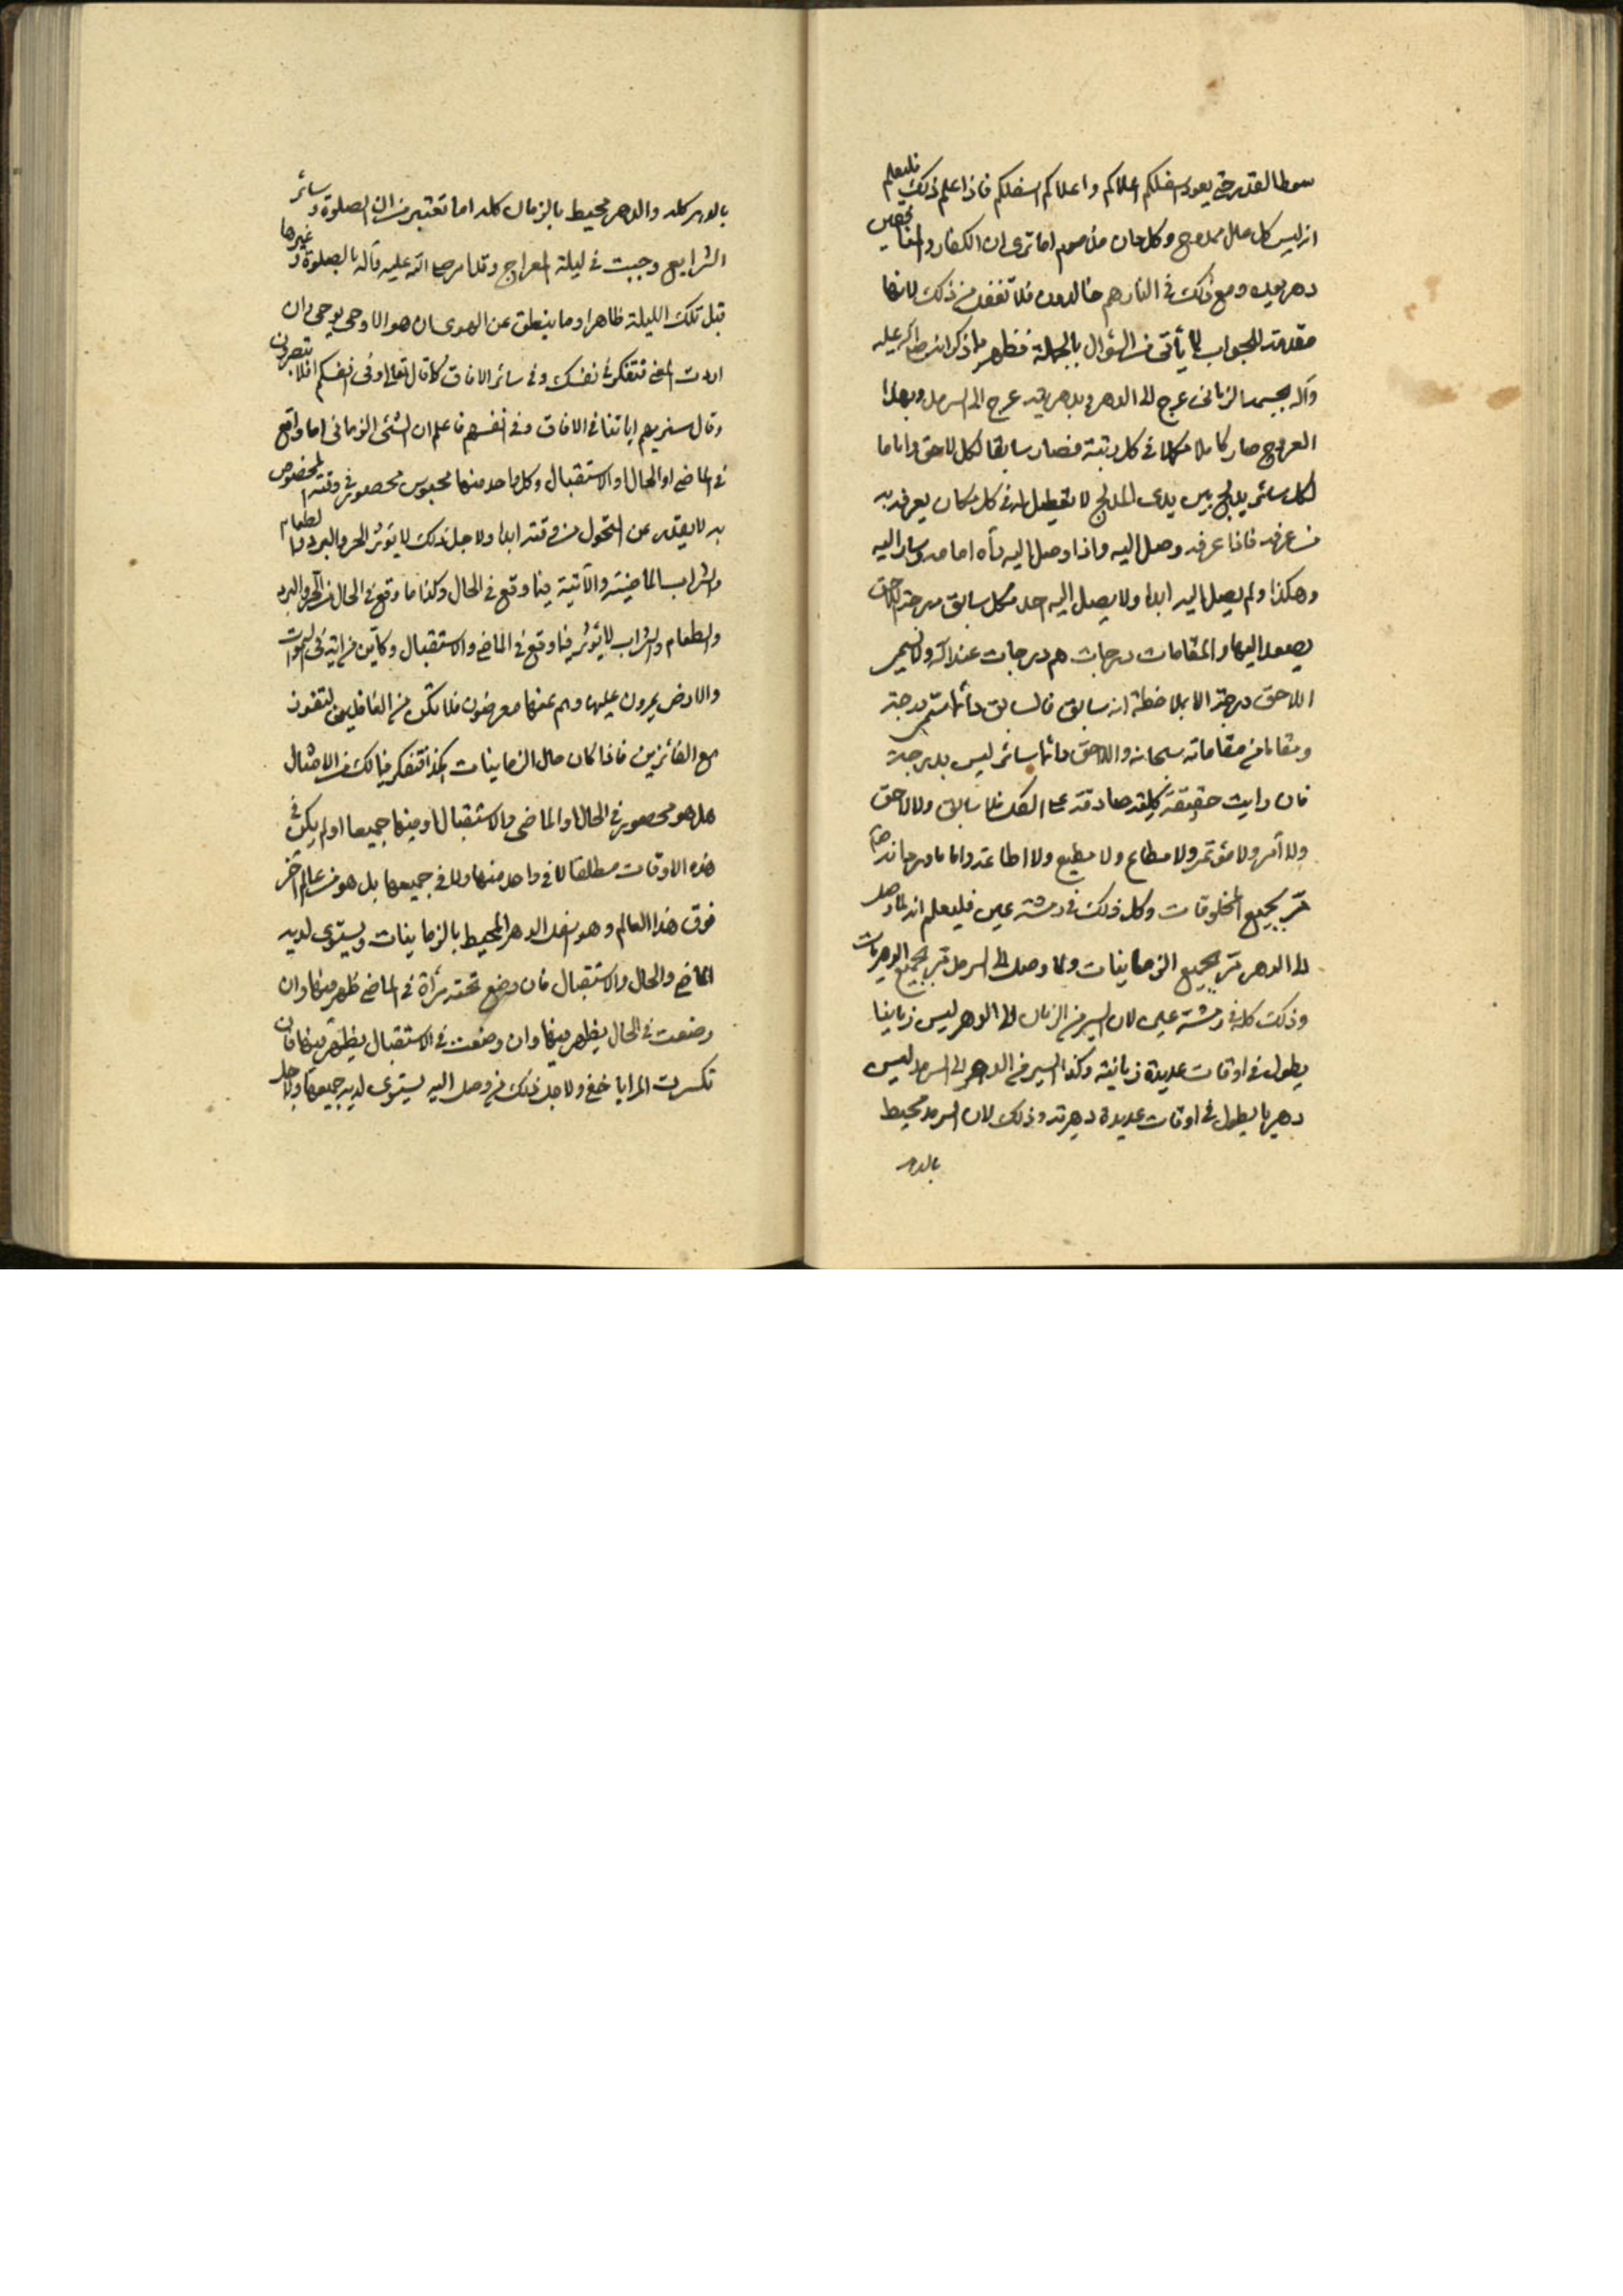 سوط القدر حتى يعود اسفلكم اعلاكم و اعلاكم اسفلكم فاذا علم ذلك فليعلم
انه ليس كل ممدوح وكل مذموم اما ترى ان الكفار والمنافقين
دهريون و مع ذلك في النار هم خالدون فلا تغفل من ذلك لانها
مقدمة لجواب لما يأتي من السؤال بالجملة فظهر مما ذكر انه صلى الله عليه
وآله بجسمه الزماني عرج الى الدهر و بدهريته عرج الى السرمد وبهذا
العروج صار كاملا مكملا في كل رتبة فصار سابقا لكل لاحق واماما
لكل سائر يدلج بين يدي المدلج لا تعطيل له في كل مكان يعرفه به
من عرفه فاذا عرفه وصل اليه واذا وصل اليه رأه امامه و سار اليه
وهكذا ولم يصل اليه ابدا ولا يصل اليه احد فكل سابق درجة لاحق
يصعد اليها والمقامات درجات هم درجات عند الله ولا يسمى
اللاحق درجة الا بملاحظة انه سابق فالسابق دائما يسمى درجة
ومقاما من مقاماته سبحانه واللاحق دائما سائر ليس بدرجة
فان رايت حقيقة كلية صادقة على الكل فلا سابق ولا لاحق
ولا آمر ولا مؤتمر ولا مطاع ولا مطيع ولا اطاعة واما ما
مر بجميع المخلوقات وكل ذلك في رمشة عين فليعلم انه لما وصل
الى الدهر مر بجميع الزمانيات ولما وصل الى السرمد مر بجميع الدهريات
وذلك كله في رمشة عين لان السير من الزمان الى الدهر ليس زمانيا
يطول في اوقات عديدة زمانية وكذا السير من الدهر الى السرمد ليس
دهريا يطول في اوقات عديدة دهرية وذلك لان السرمد محيط
بالدهر
بالدهر كله والدهر محيط بالزمان كله اما تعتبر من ان الصلوة و سائر
الشرايع وجبت في ليلة المعراج وقد امر صلى الله عليه وآله بالصلوة و غيرها
قبل تلك الليلة ظاهرا وما ينطق عن الهوى ان هو الا وحي يوحى وان
اردت المعنى فتفكر في نفسك وفي سائر الافاق كما قال تعالى وفي انفسكم افلا تبصرون
وقال سنريهم اياتنا في الافاق وفي انفسهم فاعلم ان الشئ الزماني اما واقع
في الماضي او الحال او الاستقبال وكل واحد منها محبوس محصور في وقته المخصوص
به لا يقدر عن التحول من وقته ابدا ولاجل ذلك لا يؤثر الحر والبرد والطعام
والشراب الماضية والآتية فيما وقع في الحال وكذا ما وقع في الحال من الحر والبرد
والطعام والشراب لا يؤثر فيما وقع في الماضي والاستقبال وكأين من اية في السموات
والارض يمرون عليها وهم عنها معرضون فلا تكن من الغافلين لتفوز
مع الفائزين فاذا كان حال الزمانيات كذا فتفكر في الامثال
هل هو محصور في الحال او الماضي او الاستقبال او فيها جميعا او لم يكن في
هذه الاوقات مطلقا لا في واحد منها ولا في جميعها بل هو من عالم آخر
فوق هذا العالم وهو الدهر المحيط بالزمانيات ويستوي لديه
الماضي والحال والاستقبال فان وضع تحته مرآة في الماضي ظهر فيها وان
وضعت في الحال يظهر فيها وان وضعت في الاستقبال يظهر فيها فان
تكسرت المرايا خفي ولاجل ذلك من وصل اليه يستوي لديه جميعها ولاجل